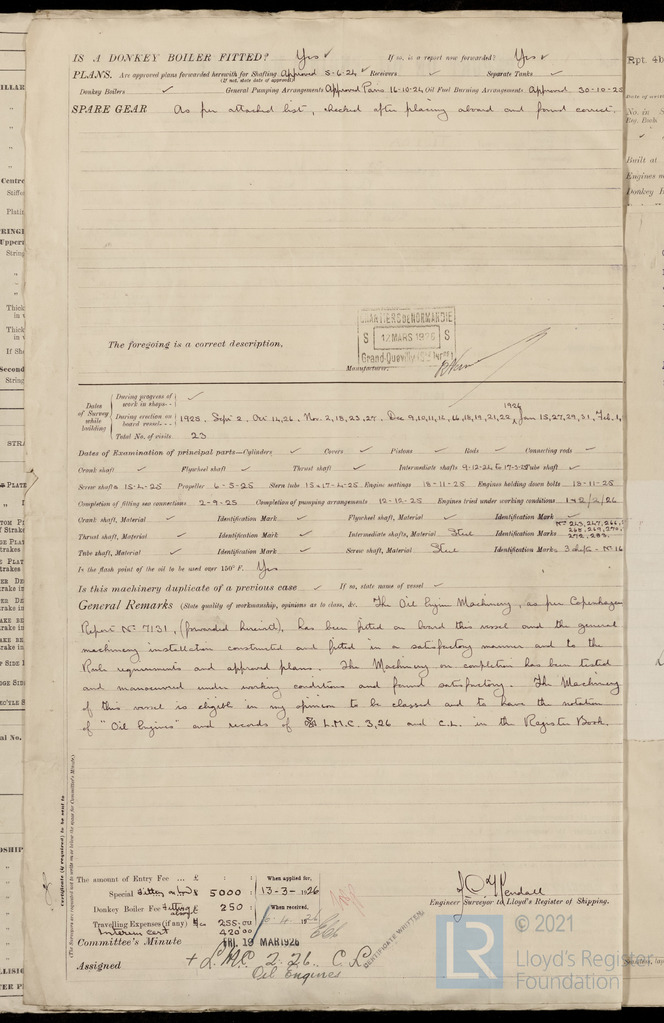 IS A DONKEY BOILER FITTED? Yes ✓ If so, is a report now forwarded? Yes ✓
PLANS. Are approved plans forwarded herewith for Shafting Approved 5-6-24 ✓ Receivers ✓ Separate Tanks ✓
(If not, state date of approval)
Donkey Boilers ✓ General Pumping Arrangements Approved Paris 16-10-24 Oil Fuel Burning Arrangements Approved 30-10-25
SPARE GEAR As per attached list, checked after placing aboard and found correct.
CHANTIERS DE NORMANDIE
S 12 MARS 1926 S
Grand-Quevilly
The foregoing is a correct description,
Manufacturer.
Dates of Survey while building
During progress of work in shops - - ✓
During erection on board vessel - - 1925. Sept 2. Oct 14,26. Nov. 2,18,23,27. Dec 9,10,11,14,16,18,19,21,22, 1926 Jan 15,27,29,31, Feb. 1,
Total No. of visits 23
Dates of Examination of principal parts—Cylinders ✓ Covers ✓ Pistons ✓ Rods ✓ Connecting rods ✓
Crank shaft ✓ Flywheel shaft ✓ Thrust shaft ✓ Intermediate shafts 9-12-24 to 17-3-25 Tube shaft ✓
Screw shafts 15-4-25 Propeller 6-5-25 Stern tube 15 & 17-4-25 Engine seatings 18-11-25 Engines holding down bolts 18-11-25
Completion of fitting sea connections 2-9-25 Completion of pumping arrangements 12-12-25 Engines tried under working conditions 1 & 2/2/26
Crank shaft, Material ✓ Identification Mark ✓ Flywheel shaft, Material ✓ Identification Mark ✓
Thrust shaft, Material ✓ Identification Mark ✓ Intermediate shafts, Material Steel Identification Marks Nos 263,267,266, 268,269,270, 272, 283.
Tube shaft, Material ✓ Identification Mark ✓ Screw shaft, Material Steel Identification Marks
Is the flash point of the oil to be used over 150° F. Yes
Is this machinery duplicate of a previous case ✓ If so, state name of vessel ✓
General Remarks (State quality of workmanship, opinions as to class, &c. The Oil Engine Machinery, as per Copenhagen
Report No 7131, (forwarded herewith), has been fitted on board this vessel and the general
machinery installation constructed and fitted in a satisfactory manner and to the
Rule requirements and approved plans. The Machinery on completion has been tested
and manoeuvred under working conditions and found satisfactory. The Machinery
of this vessel is eligible in my opinion to be classed and to have the notation
of "Oil Engines" and records of L.M.C. 3,26 and C.L. in the Register Book.
Certificate (if required) to be sent to
(The Surveyors are requested not to write on or below the space for Committee's Minute.)
The amount of Entry Fee ... £ : : When applied for,
Special fitting aboard 5000 : 13-3-1926
Donkey Boiler Fee fitting aboard £ 250 : When received,
Travelling Expenses (if any) 255.00
Interim Cert 420.00
Engineer Surveyor to Lloyd's Register of Shipping.
Committee's Minute FRI. 19 MAR 1926
CERTIFICATE WRITTEN
Assigned + L.M.C. 2.26. C.L.
Oil Engines
LR © 2021
Lloyd's Register
Foundation
Rpt. 4b
Built at